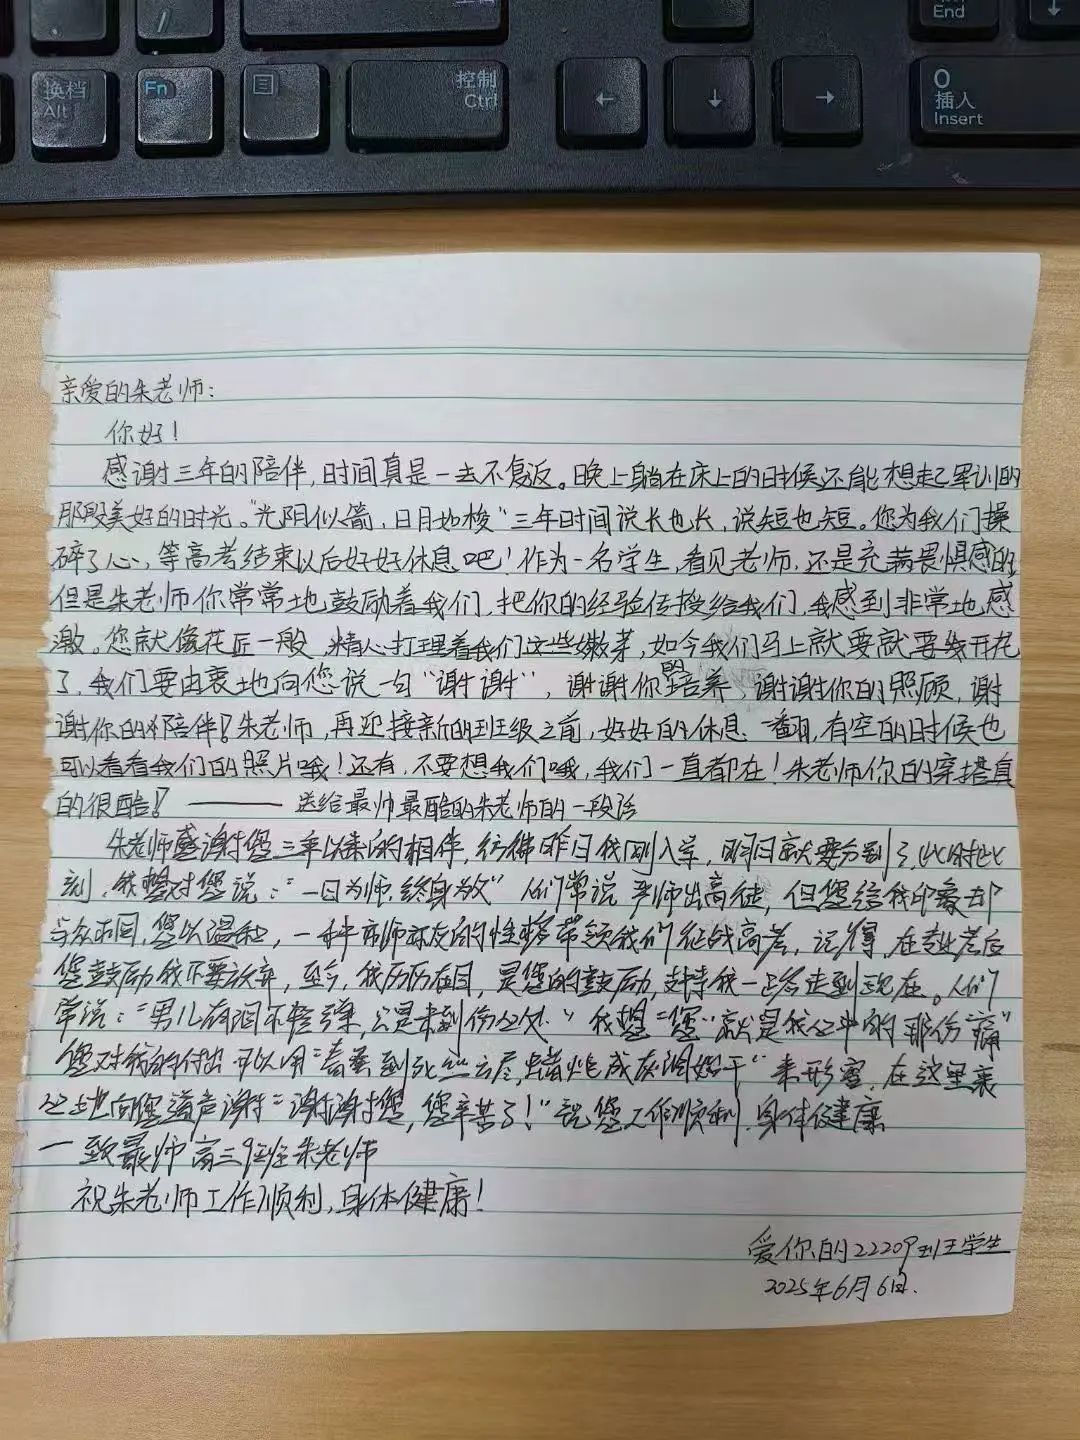 换档
Alt
Fn
控制
Ctrl
←
↓
→
End
↓
0
插入
Insert
亲爱的朱老师:
你好!
感谢三年的陪伴,时间真是一去不复返。晚上躺在床上的时候还能想起军训的
那段美好的时光。"光阴似箭,日月如梭"三年时间说长也长,说短也短。您为我们操
碎了心,等高考结束以后好好休息吧!作为一名学生,看见老师,还是充满畏惧感的
但是朱老师你常常地鼓励着我们,把你的经验传授给我们,我感到非常地感
激。您就像花匠一般,精心打理着我们这些嫩芽,如今我们马上就要就要开花
了,我们要由衷地向您说一句"谢谢",谢谢你的培养,谢谢你的照顾,谢
谢你的陪伴!朱老师,再迎接新的班级之前,好好的休息一翻,有空的时候也
可以看看我们的照片哦!还有,不要想我们哦,我们一直都在!朱老师你的穿搭真
的很酷!——送给最帅最酷的朱老师的一段话
朱老师感谢您三年以来的相伴,彷彿昨日我刚入学,明日就要分别了,此时此
刻,我想对您说:"一日为师,终身为父"人们常说严师出高徒,但您给我印象却
与众不同,您以温和,一种亦师亦友的性格带领我们征战高考,记得,在专业考后
您鼓励我不要放弃,至今,我历历在目,是您的鼓励,支持我一路走到现在。人们
常说:"男儿有泪不轻弹,只是未到伤心处"我想"您"就是我心中的那份"痛"
您对我的付出可以用"春蚕到死丝方尽,蜡炬成灰泪始干"来形容,在这里衷
心地向您道声谢"谢谢您,您辛苦了!"祝您工作顺利,身体健康
—致最帅高三9班朱老师
祝朱老师工作顺利,身体健康!
爱你的22209班王学生
2025年6月6日.